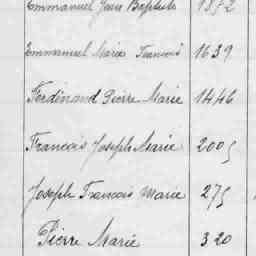 Emmanuel Jean Baptiste 1892
Emmanuel Marie Francois 1639
Ferdinand Pierre Marie 1446
Francois Joseph Marie 2005
Joseph Francois Marie 275
Pierre Marie 320